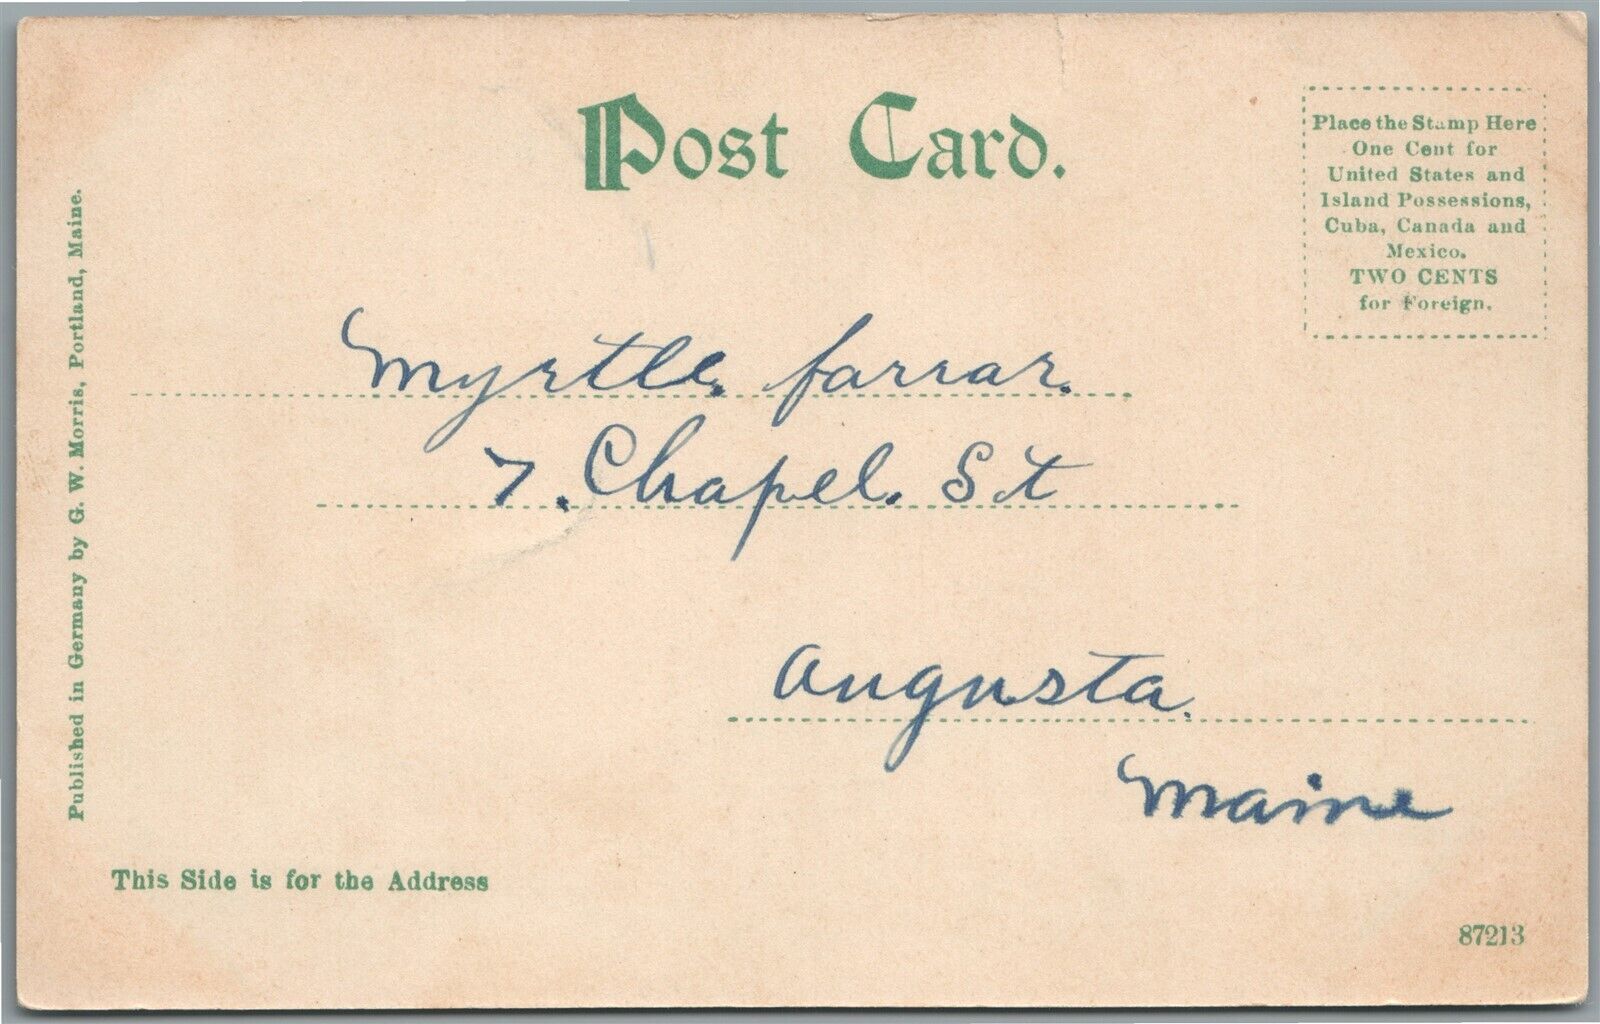 Post Card.
Place the Stamp Here
One Cent for
United States and
Island Possessions,
Cuba, Canada and
Mexico.
TWO CENTS
for Foreign.
Published in Germany by G. W. Morris, Portland, Maine.
Myrtle. farrar.
7. Chapel. St
Augusta.
Maine
This Side is for the Address
87213